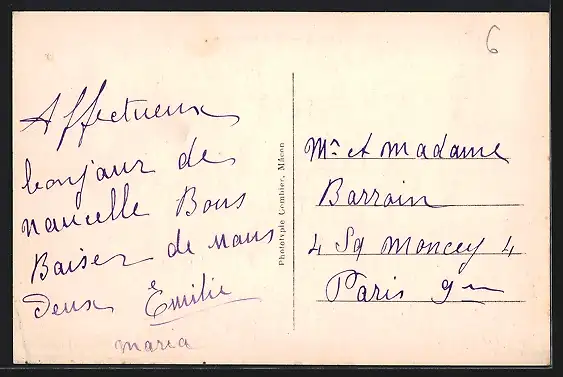 6
Affectueux
bonjour de
Nancelle Bons
Baiser de nous
deux Emilie
maria
Phototypie Combier, Mâcon
Mr et Madame
Barrain
4 Sq Moncey 4
Paris 9me